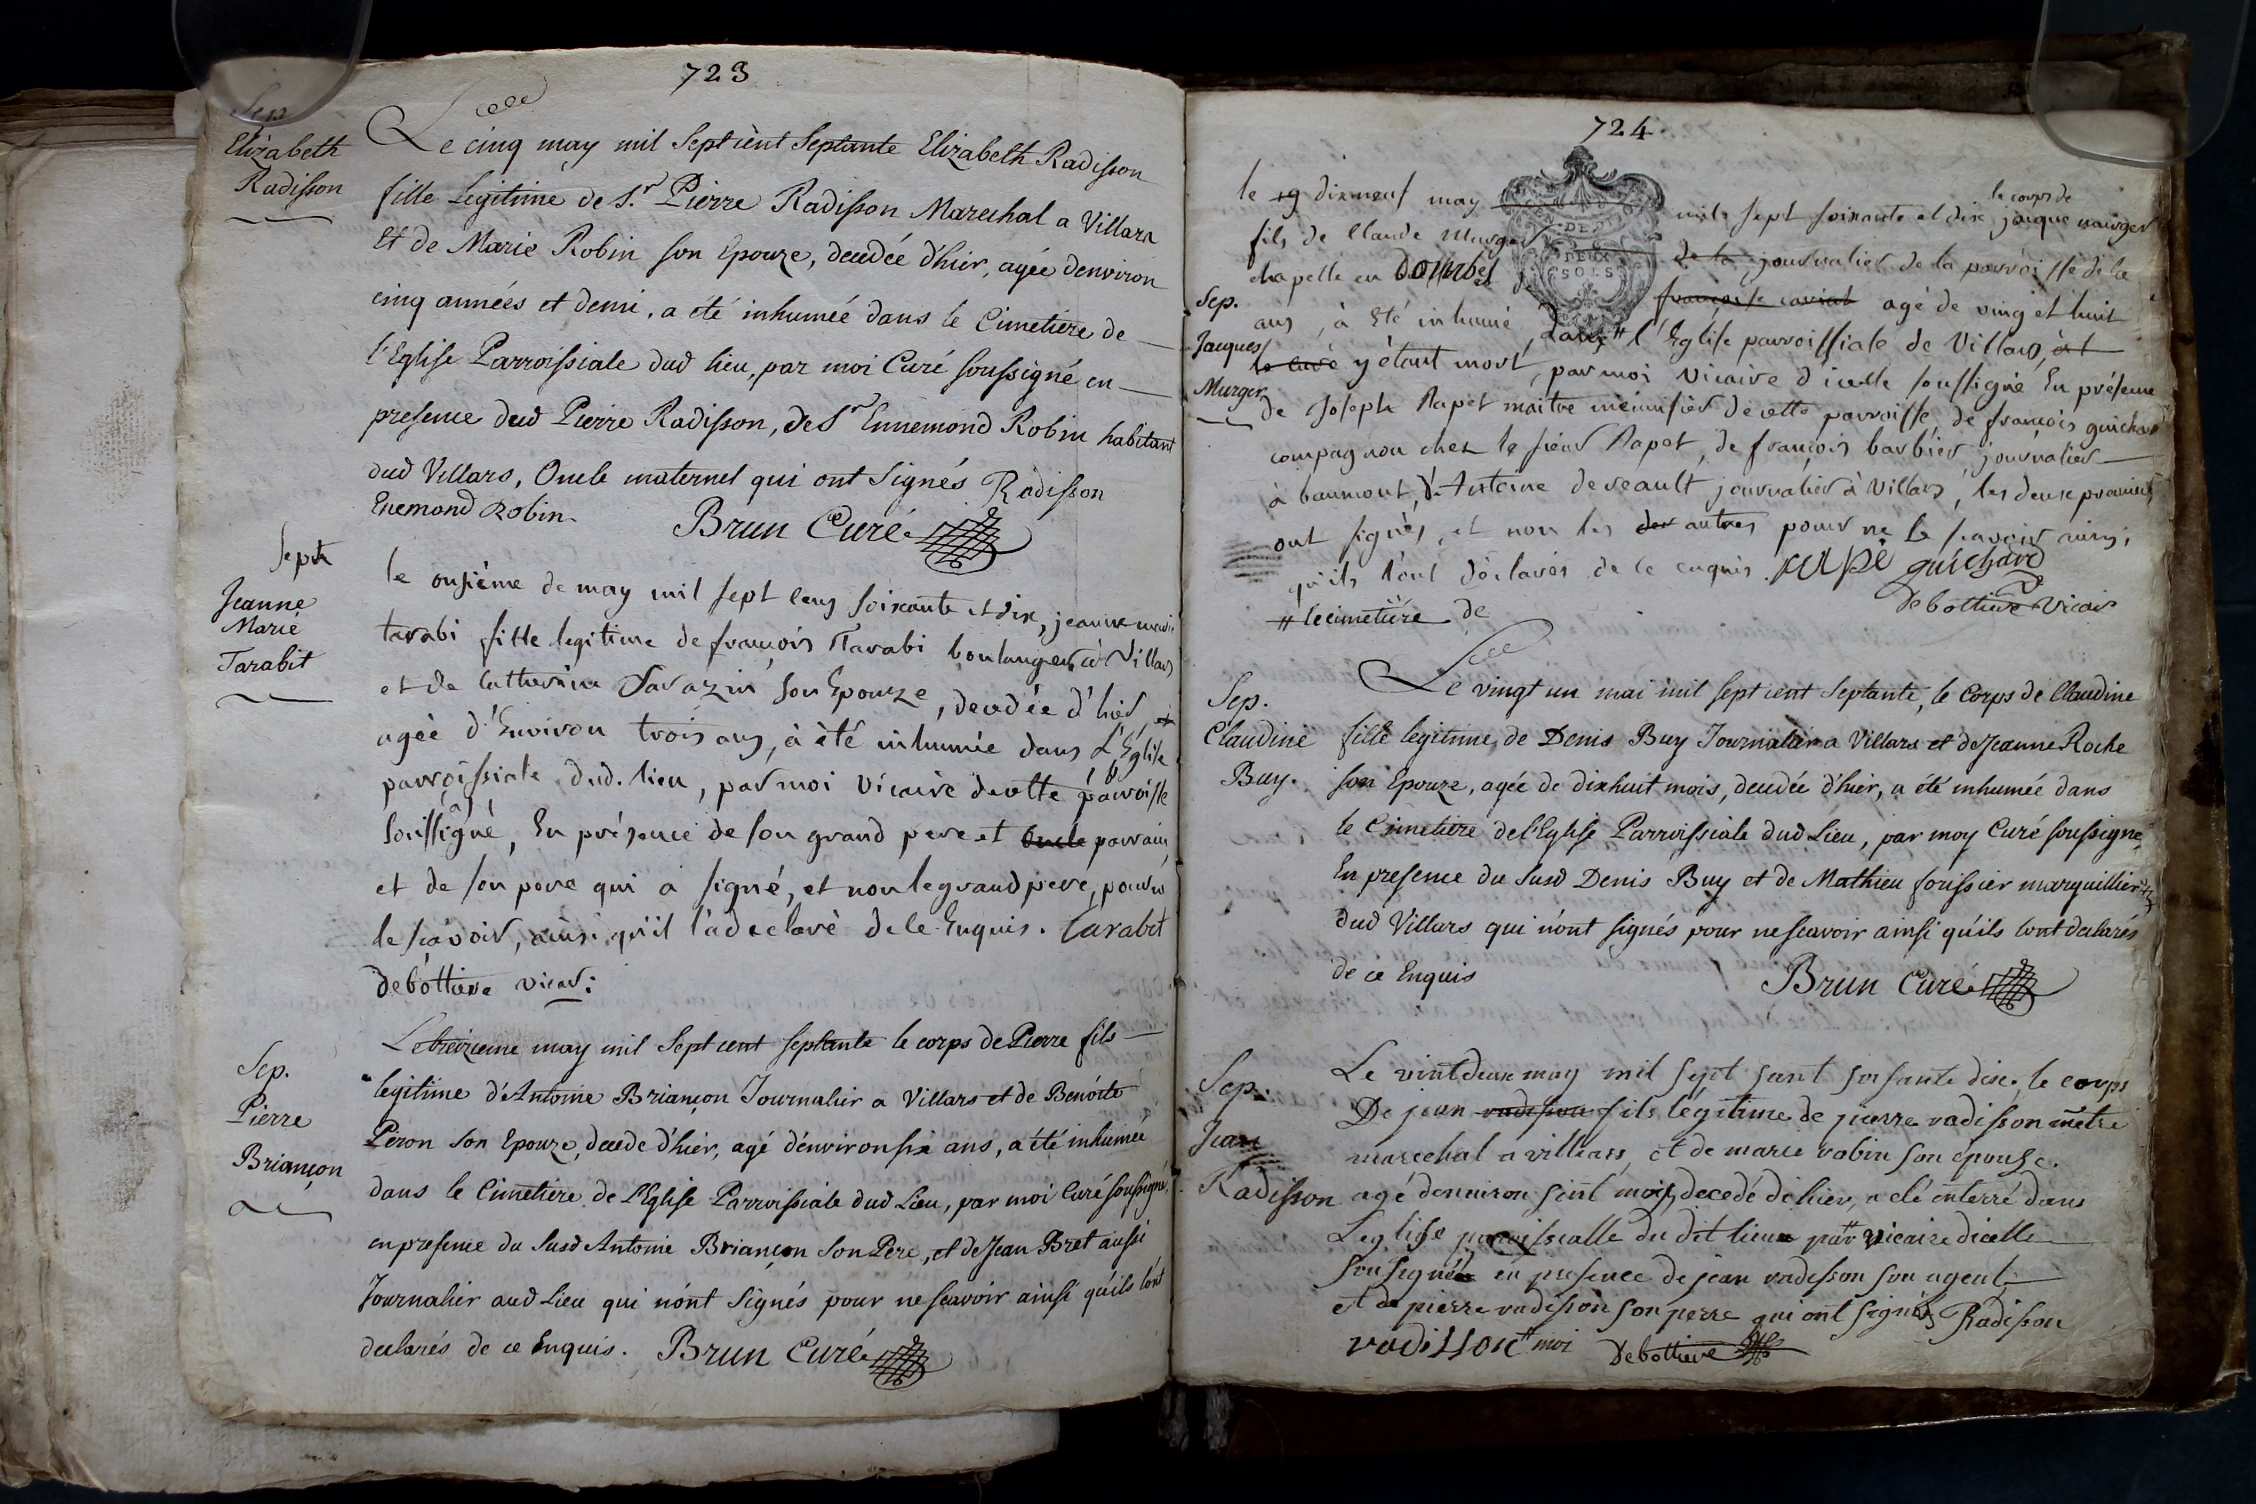 723
Sep
Elizabeth
Radisson
Le cinq may mil Sept cent Septante Elizabeth Radisson
fille Legitime de S.r Pierre Radisson Marechal a Villars
Et de Marie Robin son Epouze, decedée d'hier, agée denviron
cinq années et demi, a été inhumée dans le Cimetiere de
l'Eglise Parroissiale dud lieu, par moi Curé soussigné en
presence dud Pierre Radisson, de Sr Ennemond Robin habitant
dud Villars, Oncle maternel qui ont Signés Radisson
Enemond Robin
Brun Curé
Sept
Jeanne
Marie
Tarabit
le onsième de may mil sept cens soixante et dix, jeanne marie
tarabi fille legitime de françois Tarabi boulanger à Villars
et de Catherine Sarazin son Epouze, decedée d'hier,
agée d'Environ trois ans, à été inhumée dans L'Eglise
parroissiale dud. lieu, par moi vicaire de cette parroisse
soussigné, En présence de son grand pere et oncle parrain
et de son pere qui a signé, et non le grand pere, pour ne
le sçavoir, ainsi qu'il l'a declaré de le Enquis. Tarabit
debottiere vicar:
Sep.
Pierre
Briançon
Le treizieme may mil Sept cent septante le corps de Pierre fils
legitime d'Antoine Briançon Journalier a Villars et de Benoite
Peron son Epouze, decede d'hier, agé d'environ six ans, a été inhumée
dans le Cimetiere de L'Eglise Parroissiale dud Lieu, par moi Curé soussigné,
en presence du susd Antoine Briançon son Pere, et de Jean Bret aussi
Journalier aud Lieu qui n'ont signés pour ne scavoir ainsi qu'ils l'ont
declarés de ce Enquis. Brun Curé
724
GEN DE DIJON
DEUX
SOLS
le corps de
le 19 dixneuf may mil sept soixante et dix jaque murger
fils de Claude Murger de la journalier de la parroisse de la
chapelle en Dombes françoise agé de ving et huit
Sep.
Jacques
Murger
ans, à Eté inhumé, dans # l'Eglise parroissiale de Villars, et
le curé y étant mort, par moi Vicaire d'icelle soussigné En présence
de Joseph Rapet maitre menuisier de cette parroisse, de françois guichard
compagnon chez le sieur Rapet, de françois barbier, journalier
à baumont, d'Antoine dereault journalier à Villars, les deux premiers
ont signés, et non les des autres pour ne le scavoir ainsi
qu'ils l'ont déclarés de le enquis. rape guichard
debottiere Vicair
# le cimetière de
Sep.
Claudine
Buy.
Le vingt un mai mil sept cent septante, le Corps de Claudine
fille legitime de Denis Buy Journalier a Villars et de Jeanne Roche
son Epouze, agée de dixhuit mois, decedée d'hier, a été inhumée dans
le Cimetiere de l'Eglise Parroissiale dud Lieu, par moy Curé soussigné,
En presence du Susd Denis Buy et de Mathieu foussier marguillier
dud Villars qui n'ont signés pour ne scavoir ainsi qu'ils l'ont declarés
de ce Enquis
Brun Curé
Sep.
Jean
Radisson
Le vint deux may mil sept sant soisante dix, le corps
De jean radisson fils légitime de pierre radisson metre
marechal a villars, et de marie robin son epouse.
agé denniron sint mois, decedé dehier, a eté enterré dans
Leglise paroissialle du dit lieu par # vicaire dicelle
sousigné en presence de jean radisson son ageul
et de pierre radisson son perre qui ont signés Radisson
radisson # moi Debottiere